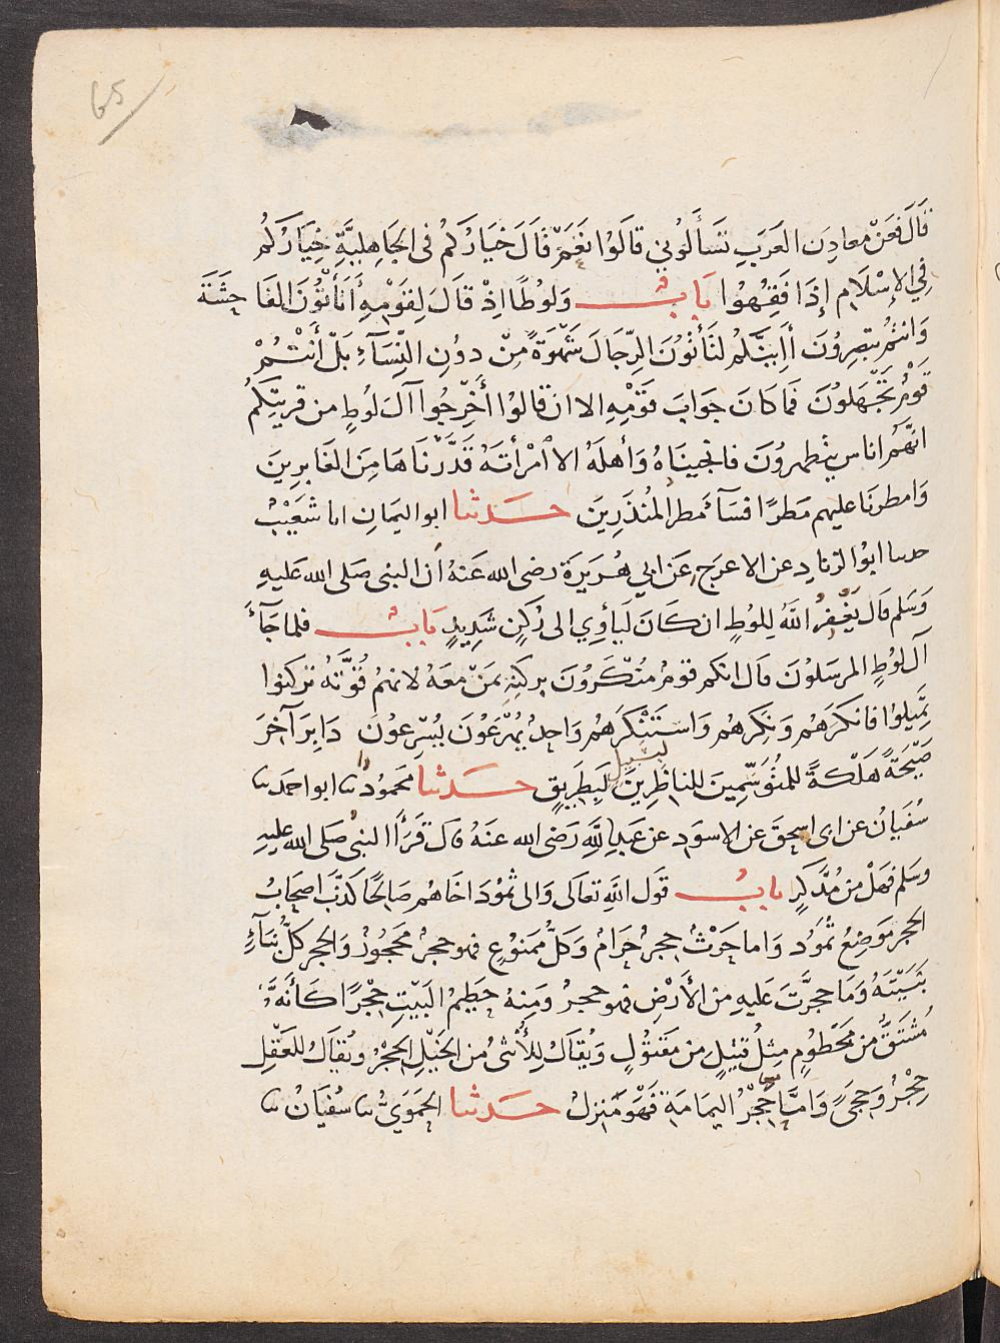 65
قَالَ فَعَنْ معادِن العَرَبِ تَسَأَلُوني قالَوُا نَعَمْ قَالَ خيَارُكمُ فى الجَاهِليَّةِ خِيَارُكُم
فِي الإسْلَامِ إذَا فَقِهُوا بَابٌ وَلوُطًا اِذْ قَالَ لِقوَمْهِ أَتَأتوُنَ الفَاحِشَةَ
وَانتُم تبصِرُونَ أَاِينَّكُم لتَأتوُنَ الرِّجَالَ شَهْوَةً مِنّ دوُنِ النِّسَآءِ بَلْ أَنْتُمْ
قَومٌ تَجْهَلوُنَ فَما كانَ جَوابَ قَوَمْهِ الا ان قالوُا أَخْرِجُوا آلَ لوُطٍ من قريتِكُم
انَّهُم اناس يتطهرُونَ فانجينَاهُ وَأهلَهُ الا امْرأتَهُ قَدَّرْنَاهَا مِنَ الغَابِرينَ
وَامطرنَا عليهم مَطَرًا فسَآءَ مطر المُنذَرِينَ حَدثنا ابو اليمَانِ انا شعَيْبٌ
حدىنا ابوُ الزنادِ عن الاعرَجِ عَن ابي هُرَيرَةَ رضى الله عَنهُ أن النبى صَلى الله عَليهِ
وَسَلم قال يَغْفِرُ اللَّهُ للوُطٍ ان كانَ لَيأوِي الى رُكْنٍ شَدِيدٍ بَابٌ فلما جَآءَ
آلَ لوُطٍ المرسَلوُنَ قال انكم قومٌ مُنْكَرُونَ بركنِهِ بمَنْ مَعَهُ لانهمُ قُوَّتهُ تركنوا
تميلوُا فانكرَهُم وَنكِرهُم وَاستَنْكرَهُم وَاحِدٌ يُهْرَعُوُنَ يُسْرِعوُنَ دَابِرَ آخرَ
صَيْحَةً هَلْكَةً للمُتَوَسِّمِينَ للناظِرِينَ لَبِطرِيقٍ حَدثنا محَموُدٌ ثنا ابو احمد ثنا
سُفيَانُ عن ابى اسحقَ عَن الاسوَدِ عن عَبدِ اللَّهِ رَضى الله عنَهُ قال قَرَأَ النبيُ صَلى الله عليهِ
وسَلم فهَلْ من مُدَّكِرٍ بابُ قوَل اللَّهِ تعَالى وَالى ثموُدَ اخَاهُم صَالِحًا كذبَ اصحَابُ
الحجر مَوضِعُ ثموُد وَاما حَرْثٌ حِجرٌ حَرامٌ وَكلُّ ممَنوُعٍ فهو حجرٌ محَجُورٌ وَالحجر كلُّ بنَآءٍ
بَنَيْتَهُ وَمَا حجرَّتَ عَليهِ من الأَرْضِ فهو حجرٌ وَمِنهُ حِطيمُ البَيْتِ حِجْرًا كَأَنهُ
مُشْتَقٌّ من مَحْطُومٍ مِثلُ قتيِلٍ من مَقتُولٍ وَيقُالُ لِلأُنثىٰ من الخيْلِ الحِجْرُ ويقُالُ للعَقْلِ
حِجْرٌ وَحِجىً وَامَّا حَجْرُ اليمَامَةِ فَهُوَ مَنزِلٌ حَدثنا الحُمَوَيْ ثنا سفيَانُ ثنا